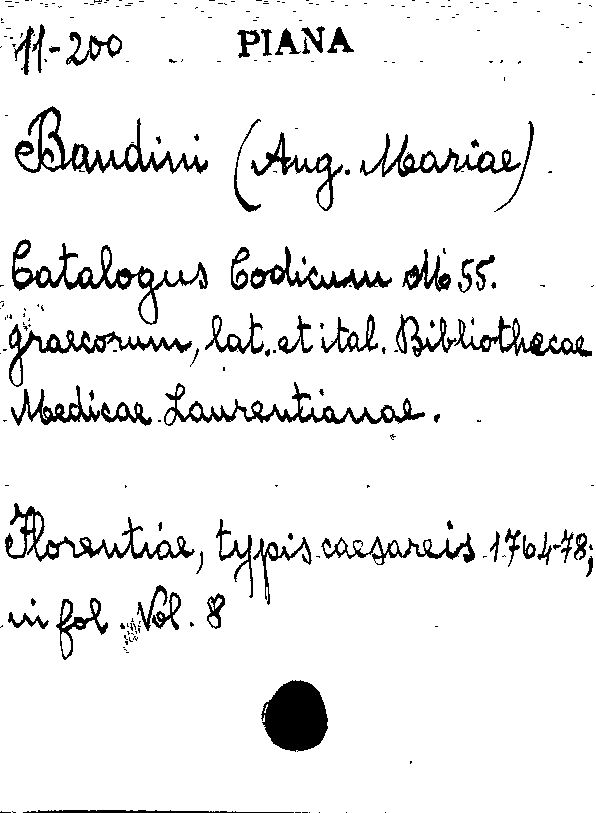 11-200 PIANA
Bandini (Ang. Mariae)
Catalogus Codicum MSS.
graecorum, lat. et ital. Bibliothecae
Medicae Laurentianae.
Florentiae, typis caesareis 1764-78;
in fol. Vol. 8